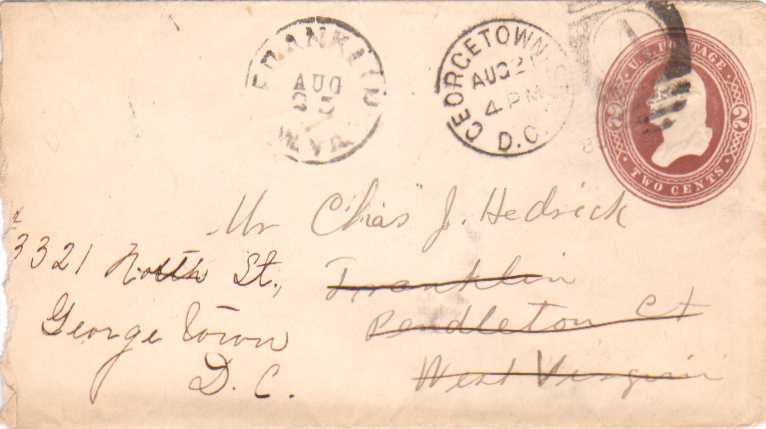 FRANKLIN
AUG
25
W.VA.
GEORGETOWN
AUG 2
4 PM
D.C.
U.S. POSTAGE
2 2
TWO CENTS
Mr Chas J. Hedrick
Franklin
Pendleton Ct
West Virginia
3321 North St.,
Georgetown
D.C.